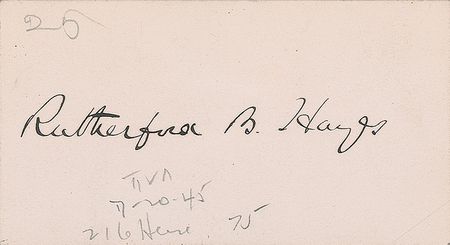 25
Rutherford B. Hayes
TVA
7-20-45
216 75